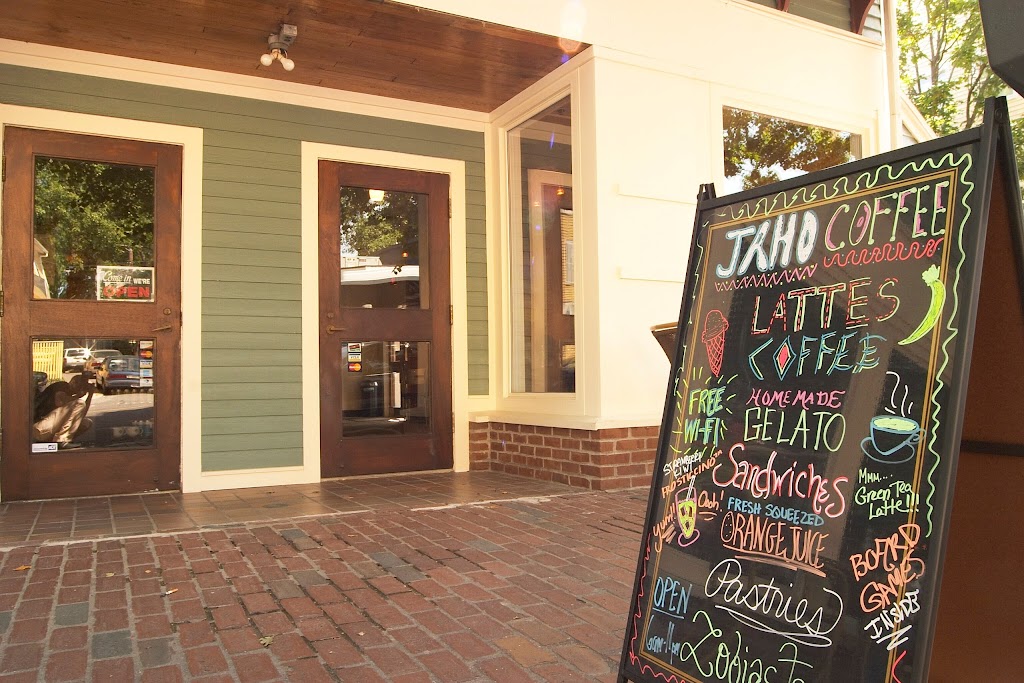 Come in WE'RE
OPEN
JAHO COFFEE
LATTES
COFFEE
FREE
WI-FI
HOMEMADE
GELATO
STRAWBERRY
KIWI
Yum!
Ooh!
Sandwiches
Mmm...
Green Tea
Latte!!!
FRESH SQUEEZED
ORANGE JUICE
BOARD
GAMES
INSIDE
Pastries
OPEN
6am-11pm